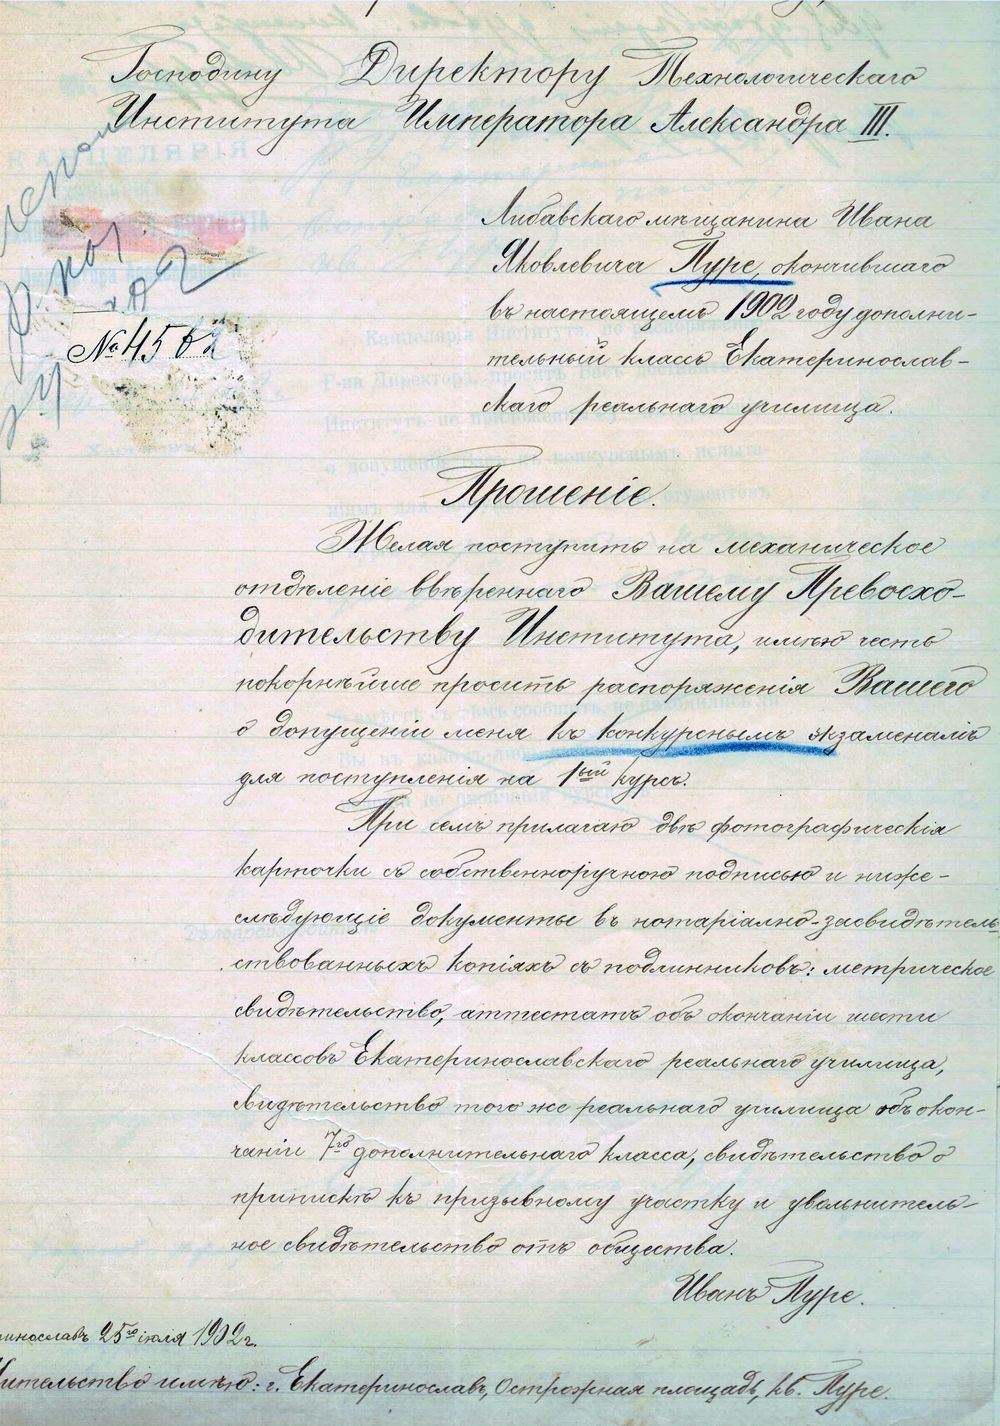 Господину Директору Технологическаго
Института Императора Александра III.
Либавскаго мѣщанина Ивана
Яковлевича Пуре, окончившаго
въ настоящемъ 1902 году дополни-
тельный классъ Екатеринослав-
скаго реальнаго училища.
№ 4502
Прошеніе.
Желая поступить на механическое
отдѣленіе ввѣреннаго Вашему Превосхо-
дительству Института, имѣю честь
покорнѣйше просить распоряженія Вашего
о допущеніи меня къ конкурснымъ экзаменамъ
для поступленія на 1ый курсъ.
При семъ прилагаю двѣ фотографическія
карточки съ собственноручною подписью и ниже-
слѣдующіе документы въ нотаріально-засвидѣтель-
ствованныхъ копіяхъ съ подлинниковъ: метрическое
свидѣтельство, аттестатъ объ окончаніи шести
классовъ Екатеринославскаго реальнаго училища,
свидѣтельство того же реальнаго училища объ окон-
чаніи 7го дополнительнаго класса, свидѣтельство о
припискѣ къ призывному участку и увольнитель-
ное свидѣтельство отъ общества.
Иванъ Пуре.
ринославъ 25го іюля 1902 г.
ительство имѣю: г. Екатеринославъ, Острожная площадь, кв. Пуре.